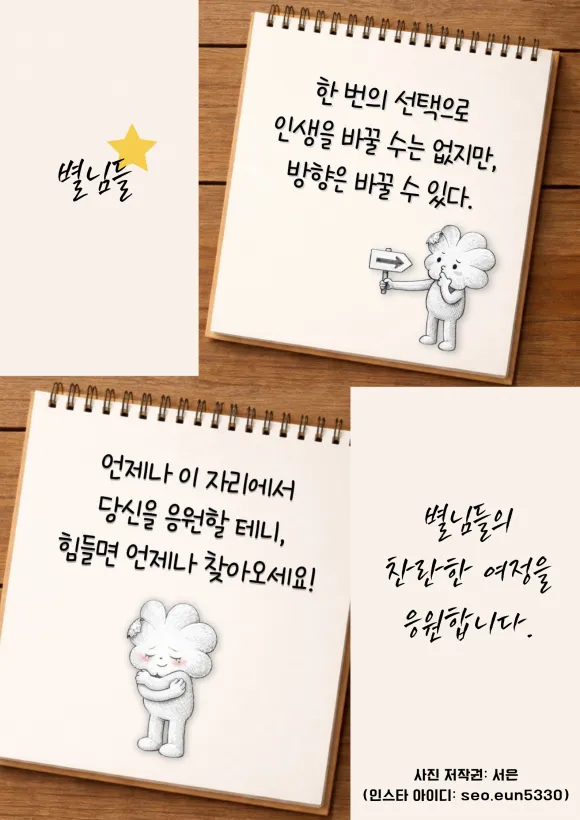 별님들
한 번의 선택으로
인생을 바꿀 수는 없지만,
방향은 바꿀 수 있다.
언제나 이 자리에서
당신을 응원할 테니,
힘들면 언제나 찾아오세요!
별님들의
찬란한 여정을
응원합니다.
사진 저작권: 서은
(인스타 아이디: seo.eun5330)